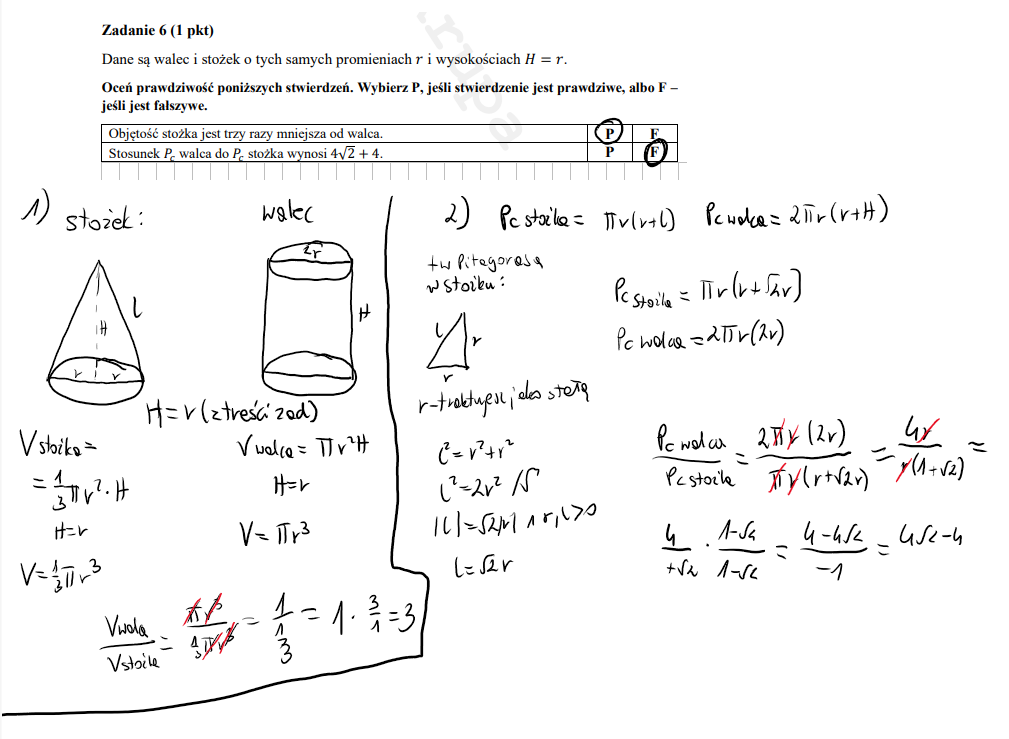 Zadanie 6 (1 pkt)
Dane są walec i stożek o tych samych promieniach r i wysokościach H = r.
Oceń prawdziwość poniższych stwierdzeń. Wybierz P, jeśli stwierdzenie jest prawdziwe, albo F –
jeśli jest fałszywe.
Objętość stożka jest trzy razy mniejsza od walca. P F
Stosunek P_c walca do P_c stożka wynosi 4√2 + 4. P F
1) stożek:
walec
2r
l
H
r r
H
H=r (z treści zad)
V stożka =
= 1/3 πr² · H
H=r
V = 1/3 πr³
V walca = πr²H
H=r
V = πr³
V walca / V stożka = πr³ / 1/3 πr³ = 1 / 1/3 = 1 · 3/1 = 3
2) Pc stożka = πr(r+l) Pc walca = 2πr(r+H)
tw Pitagorasa
w stożku:
l r
r
r-traktujesz jako stałą
l² = r²+r²
l² = 2r² /√
|l| = √2|r| ∧ r,l>0
l = √2r
Pc stożka = πr(r+√2r)
Pc walca = 2πr(2r)
Pc walca / Pc stożka = 2πr(2r) / πr(r+√2r) = 4r / r(1+√2) =
4 / +√2 · 1-√2 / 1-√2 = 4-4√2 / -1 = 4√2-4